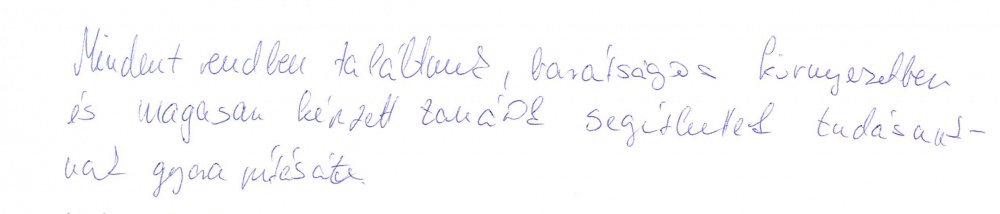 Mindent rendben találtunk, barátságos környezetben
és magasan képzett tanárok segítettek tudásunk-
nak gyarapítására.